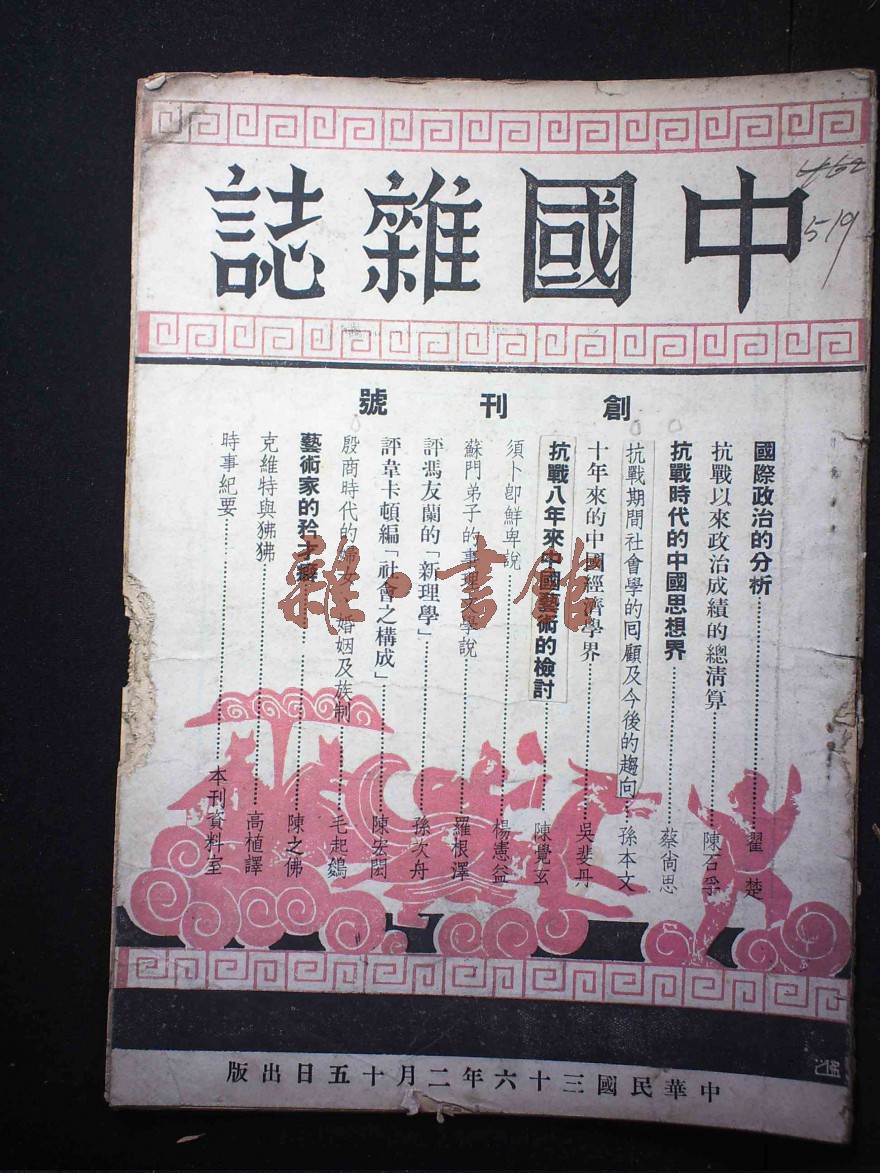 中國雜誌
519
創刊號
國際政治的分析⋯⋯翟 楚
抗戰以來政治成績的總清算⋯⋯陳石孚
抗戰時代的中國思想界⋯⋯蔡尙思
抗戰期間社會學的囘顧及今後的趨向⋯⋯孫本文
十年來的中國經濟學界⋯⋯吳斐丹
抗戰八年來中國藝術的檢討⋯⋯陳覺玄
須卜卽鮮卑說⋯⋯楊憲益
蘇門弟子的事理文學說⋯⋯羅根澤
評馮友蘭的「新理學」⋯⋯孫次舟
評韋卡頓編「社會之構成」⋯⋯陳宏閎
殷商時代的婦女婚姻及族制⋯⋯毛起鵕
藝術家的矜才癖⋯⋯陳之佛
克維特與狒狒⋯⋯高植譯
時事紀要⋯⋯本刊資料室
雜·書館
中華民國三十六年二月十五日出版